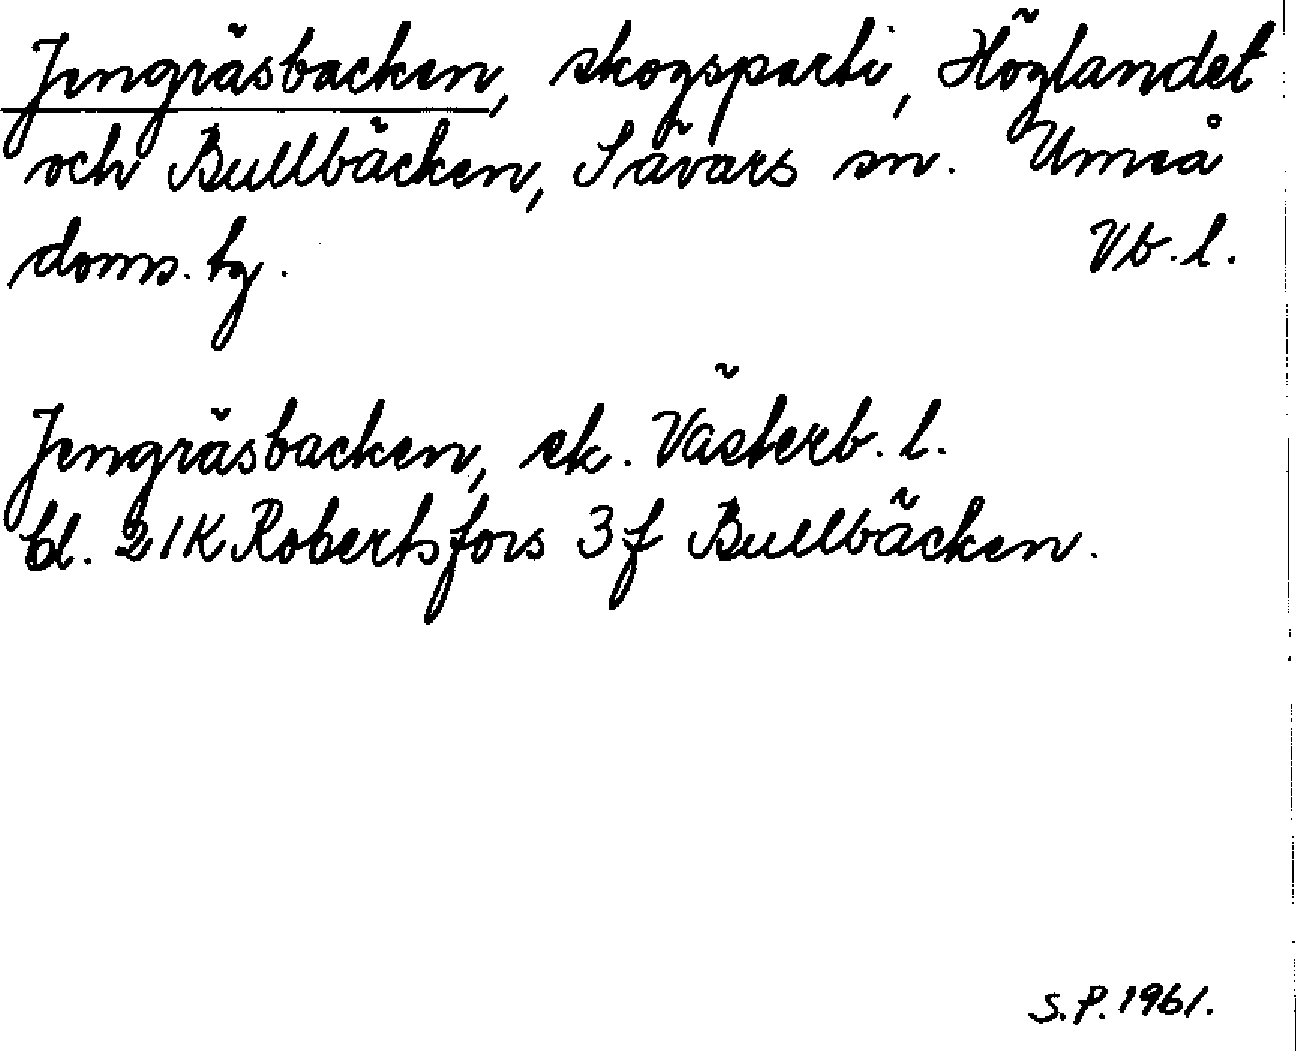 Jengräsbacken, skogsparti, Höglandet
och Bullbäcken, Sävars sn. Umeå
doms. tg. Vb. l.
Jengräsbacken, sk. Västerb. l.
bl. 21K Robertsfors 3f Bullbäcken.
S.P. 1961.